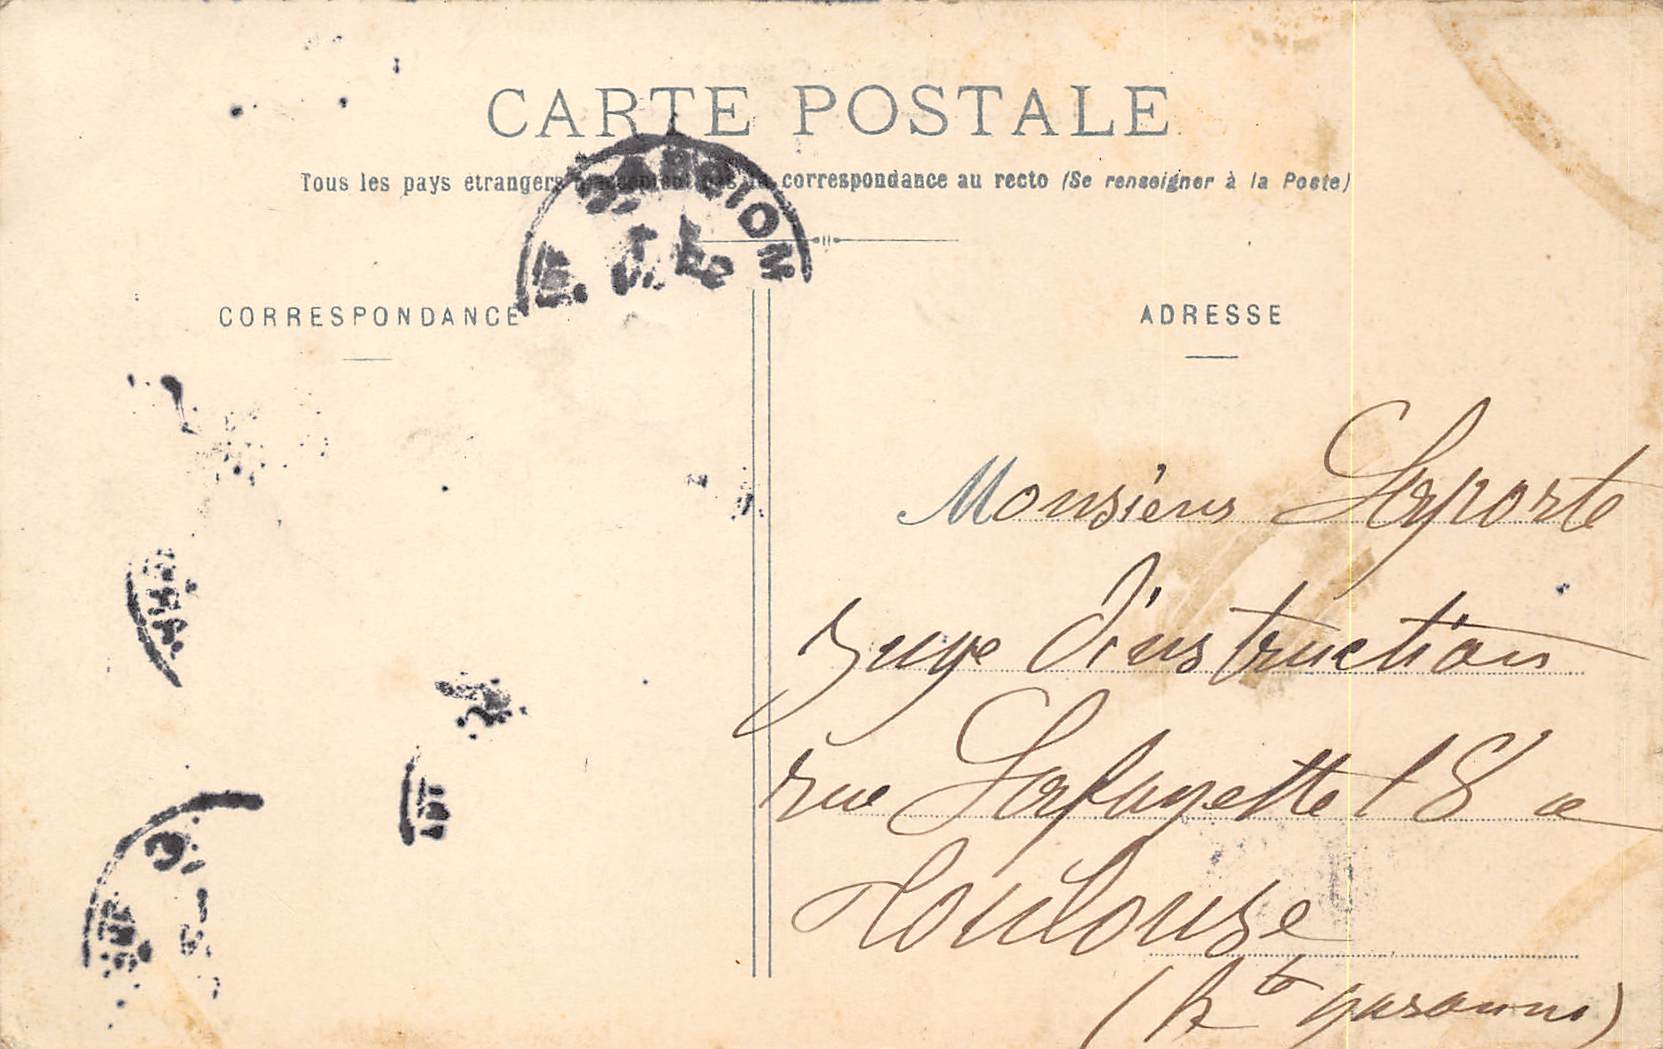 CARTE POSTALE
Tous les pays étrangers n'acceptent pas la correspondance au recto (Se renseigner à la Poste)
CORRESPONDANCE
ADRESSE
Monsieur Laporte
Juge d'instruction
rue Lafayette 18 a
Toulouse
(Hte garonne)